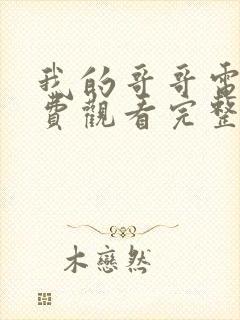 我的哥哥電
費觀看完整
木戀然